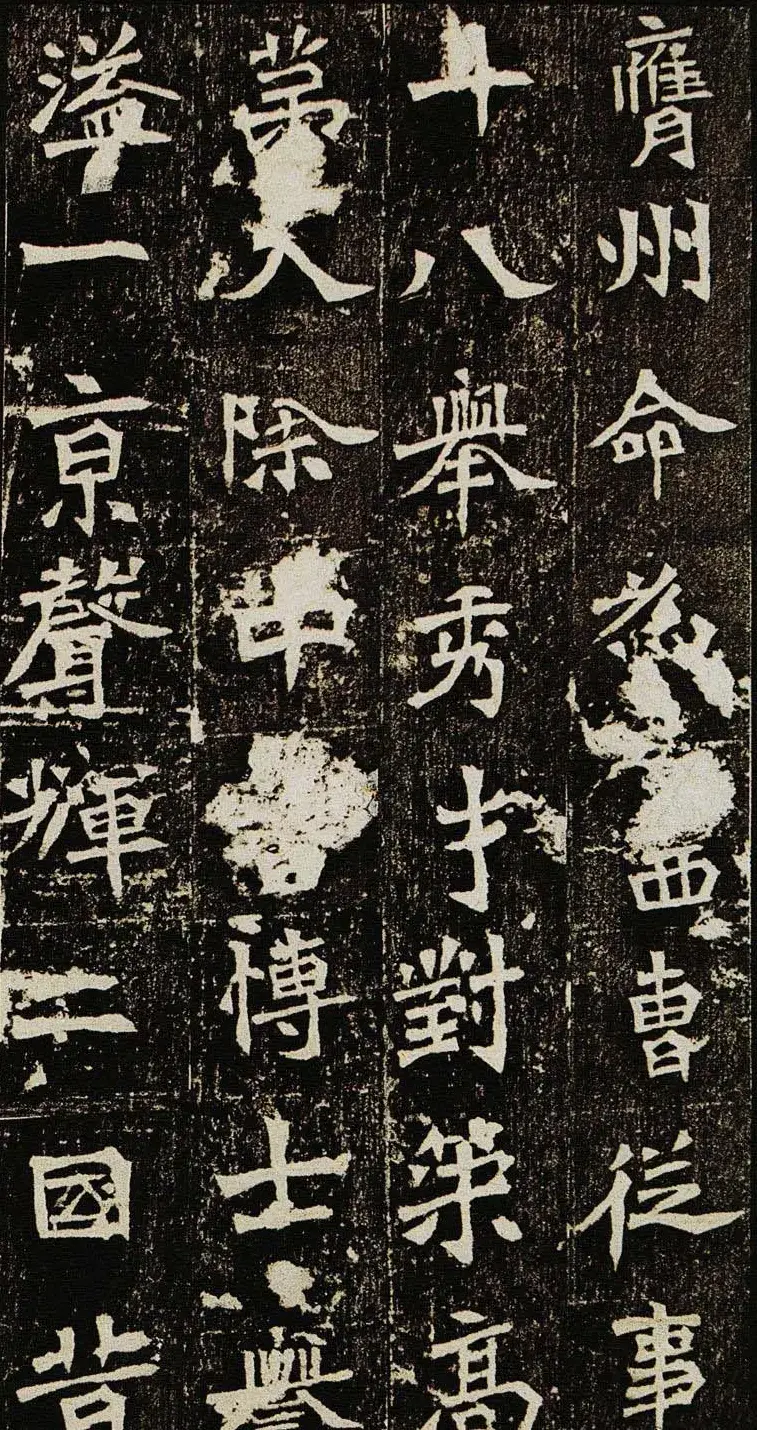 膺州命為西曹從事
十八舉秀才對策高
第入除中書博士譽
溢一京聲輝二國昔